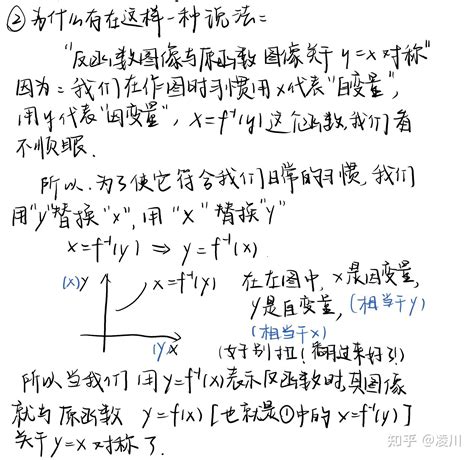 ②为什么有在这样一种说法:
"反函数图像与原函数图像关于y=x对称"
因为:我们在作图时习惯用x代表"自变量",
用y代表"因变量",x=f⁻¹(y)这个函数,我们看
不顺眼.
所以.为了使它符合我们日常的习惯,我们
用"y"替换"x",用"x"替换"y"
x=f⁻¹(y) ⇒ y=f⁻¹(x)
(x)y x=f⁻¹(y) 在左图中,x是因变量,
y是自变量,(相当于y)
(相当于x)
(y)x (好别扭!翻过来好了!)
所以当我们用y=f⁻¹(x)表示反函数时,其图像
就与原函数 y=f(x)[也就是①中的x=f⁻¹(y)]
关于y=x对称了.
知乎 @凌川